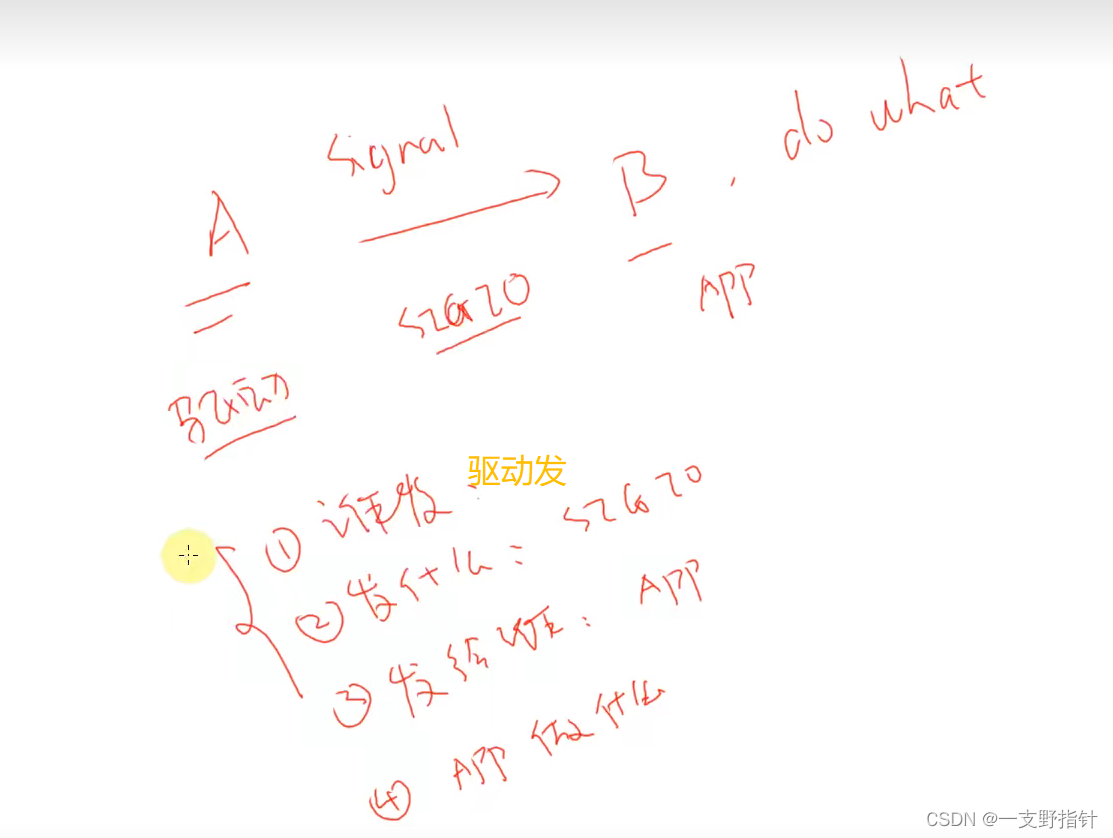 signal
A → B , do what
SIGIO
APP
驱动
驱动发
① 谁发:
② 发什么: SIGIO
③ 发给谁: APP
④ APP 做什么
CSDN @一支野指针